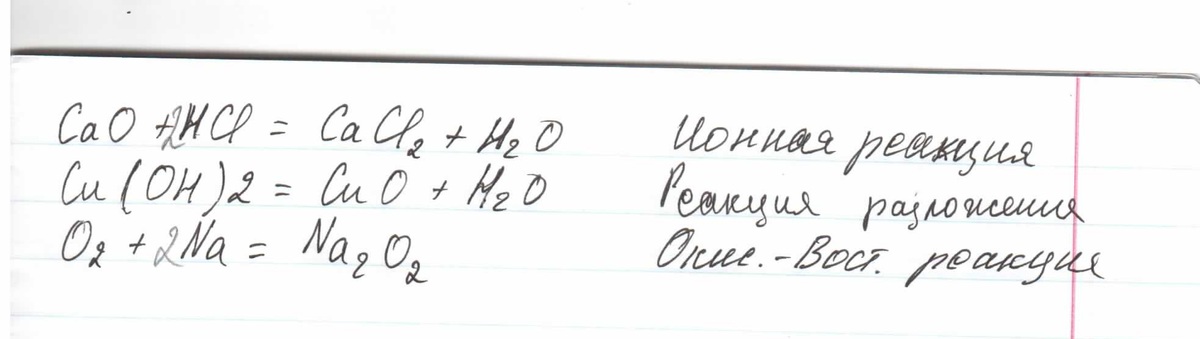 CaO + 2HCl = CaCl₂ + H₂O Ионная реакция
Cu(OH)2 = CuO + H₂O Реакция разложения
O₂ + 2Na = Na₂O₂ Окис.-Вост. реакция